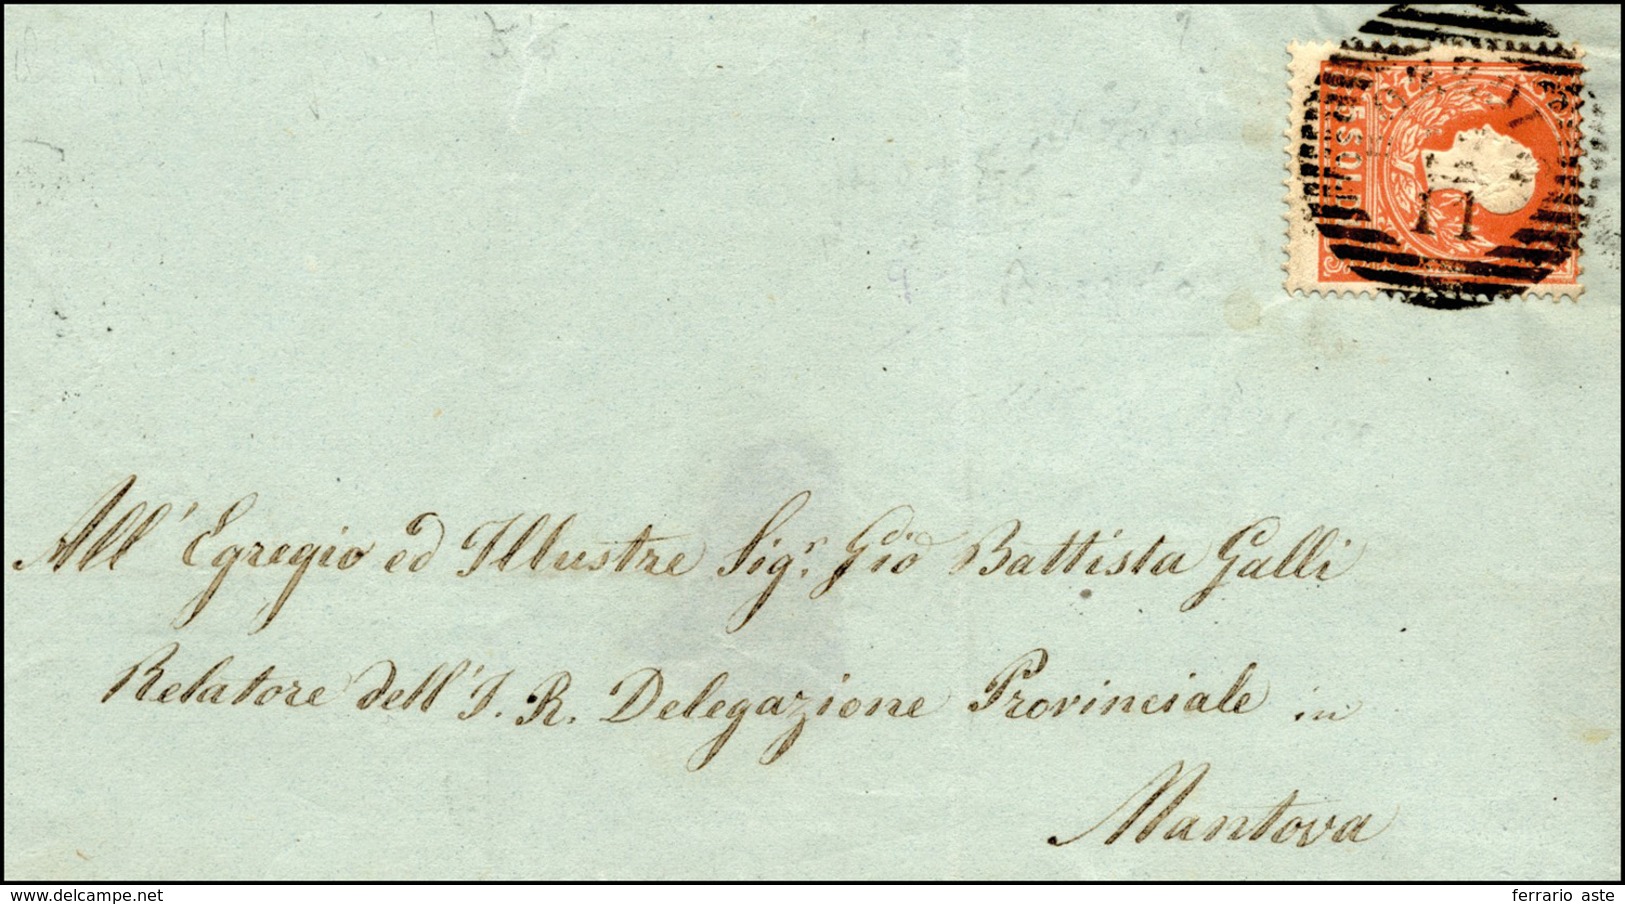 5 SOLDI
11
All' Egregio ed Illustre Sigr. Gio Battista Galli
Relatore dell' I. R. Delegazione Provinciale in
Mantova
delcampe.net
ferrario aste